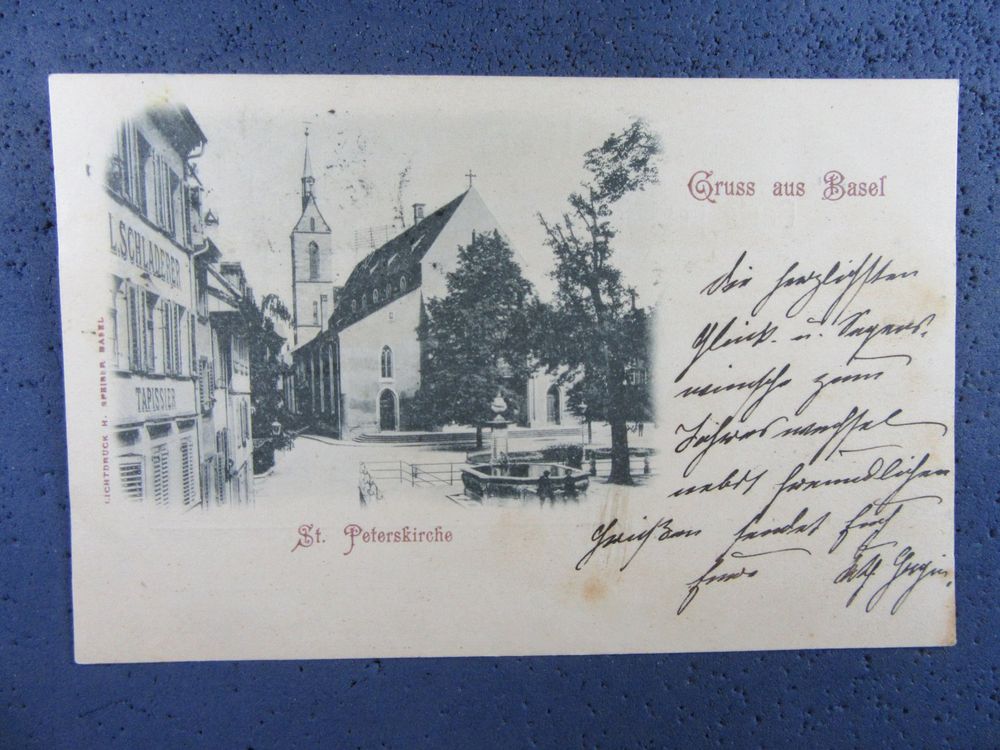 Gruss aus Basel
L. SCHLADERER
TAPISSIER
LICHTDRUCK H. SPEISER BASEL
St. Peterskirche
Die herzlichsten
Glück- u. Segens-
wünsche zum
Jahreswechsel
nebst freundlichen
Grüßen sendet Euch
Eure